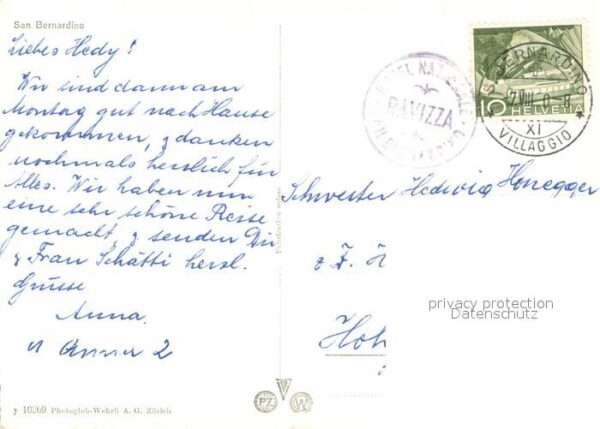 San Bernardino
Liebes Hedy!
Wir sind dann am
Montag gut nach Hause
gekommen, & danken
nochmals herzlich für
Alles. Wir haben nun
eine sehr schöne Reise
gemacht, & senden Dir
& Frau Schätti herzl.
Grüsse
Anna.
2
HOTEL NATIONALE
RAVIZZA
SAN BERNARDINO
S. BERNARDINO
VIII
XI
VILLAGGIO
10
HELVETIA
Schwester Hedwig Honegger
z. Z.
Hoh
privacy protection
Datenschutz
PZ
W
10269 Photoglob-Wehrli A. G. Zürich